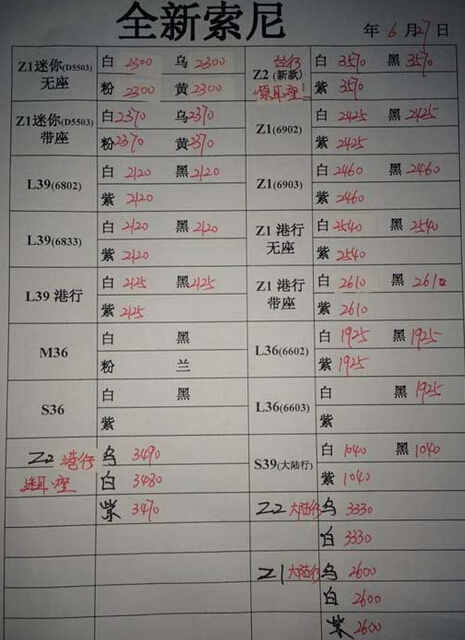 全新索尼
年 6 月 27 日
Z1迷你(D5503) 无座 白 2300 乌 2300
粉 2300 黄 2300
Z1迷你(D5503) 带座 白 2370 乌 2370
粉 2370 黄 2370
L39(6802) 白 2120 黑 2120
紫 2120
L39(6833) 白 2120 黑 2120
紫 2120
L39 港行 白 2125 黑 2125
紫 2125
M36 白 黑
粉 兰
S36 白 黑
紫
Z2 港行 乌 3490
送耳座 白 3480
紫 3470
Z2 (新款) 港行 白 3570 黑 3570
原耳座! 紫 3570
Z1(6902) 白 2425 黑 2425
紫 2425
Z1(6903) 白 2460 黑 2460
紫 2460
Z1 港行 无座 白 2540 黑 2540
紫 2540
Z1 港行 带座 白 2610 黑 2610
紫 2610
L36(6602) 白 1925 黑 1925
紫 1925
L36(6603) 白 黑 1925
紫
S39(大陆行) 白 1040 黑 1040
紫 1040
Z2 大陆行 乌 3330
白 3330
Z1 大陆行 乌 2600
白 2600
紫 2600